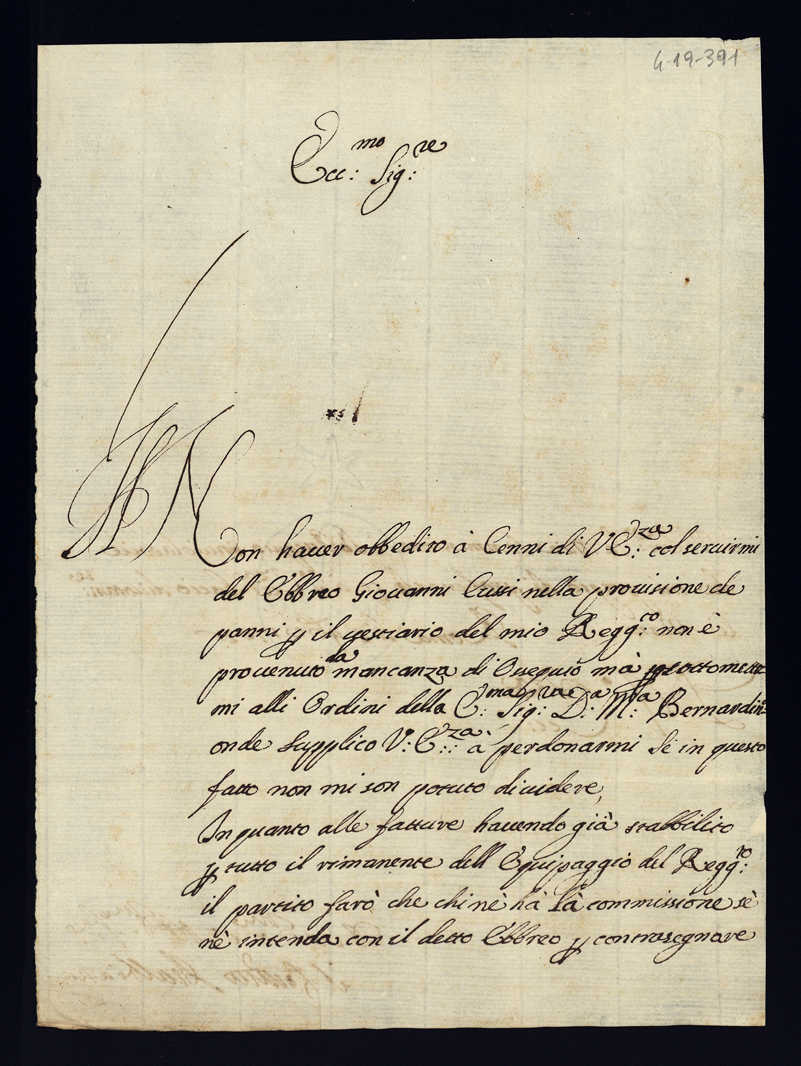 4-19-391
Ecc:mo Sig:re
Non hauer obbedito à Cenni di V E:za col seruirmi
del Ebbreo Giouanni Cussi nella prouisione de
panni p il vestiario del mio Regg:to non è
prouenuto da mancanza di Ossequio mà p sottometter
mi alli Ordini della E:ma Sig:ra D:a M:a Bernardina
onde supplico V: E:za à perdonarmi sè in questo
fatto non mi son potuto diuidere,
In quanto alle fatture hauendo già stabbilito
p tutto il rimanente dell Equipaggio del Regg:to
il partito farò che chi nè hà là commissione sè
nè intenda con il detto Ebbreo p contrasegnare